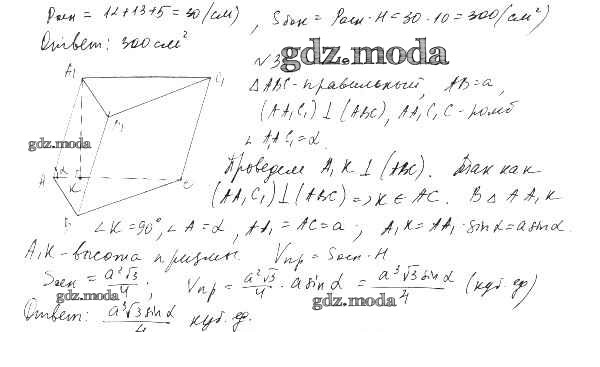 Pосн = 12+13+5 = 30 (см), Sбок = Pосн · H = 30 · 10 = 300 (см²)
Ответ: 300 см²
N 3
gdz.moda
A₁ C₁
B₁
△ABC - правильный, AB = a,
(AA₁C₁) ⊥ (ABC), AA₁C₁C - ромб
gdz.moda
∠A₁AC = α.
A α K C
B
Проведем A₁K ⊥ (ABC). Так как
(AA₁C₁) ⊥ (ABC) => K ∈ AC. В △ AA₁K
∠K = 90°, ∠A = α, AA₁ = AC = a; A₁K = AA₁ · sin α = a sin α.
A₁K - высота призмы. Vпр = Sосн · H
Sосн = a²√3/4; Vпр = a²√3/4 · a sin α = a³√3 sin α/4 (куб. ед)
gdz.moda gdz.moda
Ответ: a³√3 sin α/4 куб. ед.